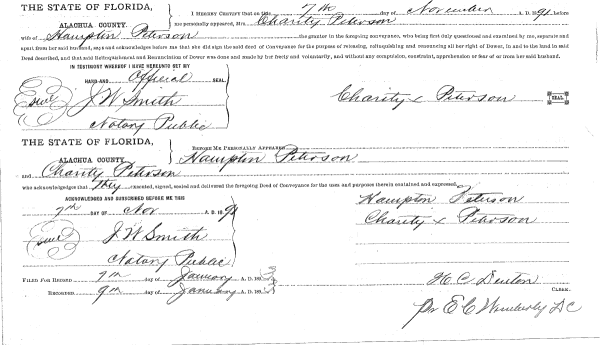 THE STATE OF FLORIDA,
ALACHUA COUNTY.
I HEREBY CERTIFY That on this 7th day of November A. D. 1891 before
me personally appeared, Mrs. Charity Peterson
wife of Hampton Peterson the grantor in the foregoing conveyance, who being first duly questioned and examined by me, separate and
apart from her said husband, says and acknowledges before me that she did sign the said deed of Conveyance for the purpose of releasing, relinquishing and renouncing all her right of Dower, in and to the land in said
Deed described, and that said Relinquishment and Renunciation of Dower was done and made by her freely and voluntarily, and without any compulsion, constraint, apprehension or fear of or from her said husband.
IN TESTIMONY WHEREOF I HAVE HEREUNTO SET MY
HAND AND Official SEAL.
Seal J. W Smith
Notary Public
Charity x Peterson SEAL
THE STATE OF FLORIDA,
ALACHUA COUNTY
BEFORE ME PERSONALLY APPEARED
Hampton Peterson
and Charity Peterson
who acknowledges that they executed, signed, sealed and delivered the foregoing Deed of Conveyance for the uses and purposes therein contained and expressed.
ACKNOWLEDGED AND SUBSCRIBED BEFORE ME THIS
7th DAY OF Nov A. D. 1891
Seal J. W Smith
Notary Public
Hampton Peterson
Charity x Peterson
FILED FOR RECORD 7th day of January A. D. 189
RECORDED 9th day of January A. D. 189
H. C. Denton CLERK.
Pr E C Wimberly DC